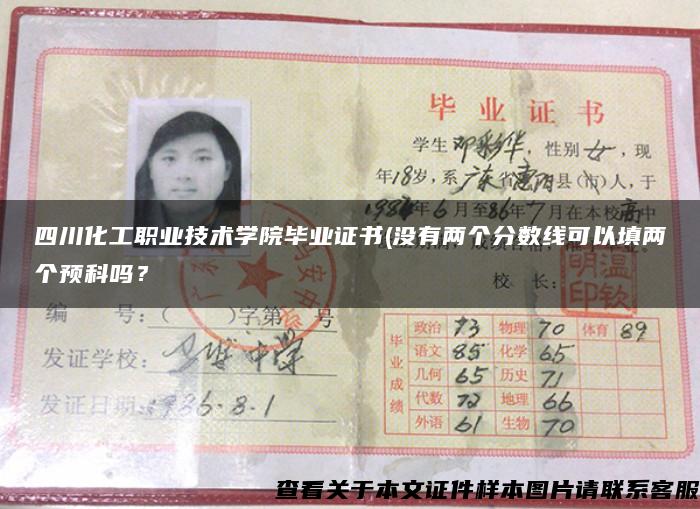 毕业证书
学生邓彩华，性别女，现
年18岁，系广东省惠阳县(市)人，于
1984年6月至86年7月在本校高
四川化工职业技术学院毕业证书(没有两个分数线可以填两
个预科吗？
校 长：
编 号：( )字第 号
发证学校： 中学
发证日期：1986.8.1
毕业成绩
政治 73 物理 70 体育 89
语文 85 化学 65
几何 65 历史 71
代数 72 地理 66
外语 61 生物 70
查看关于本文证件样本图片请联系客服